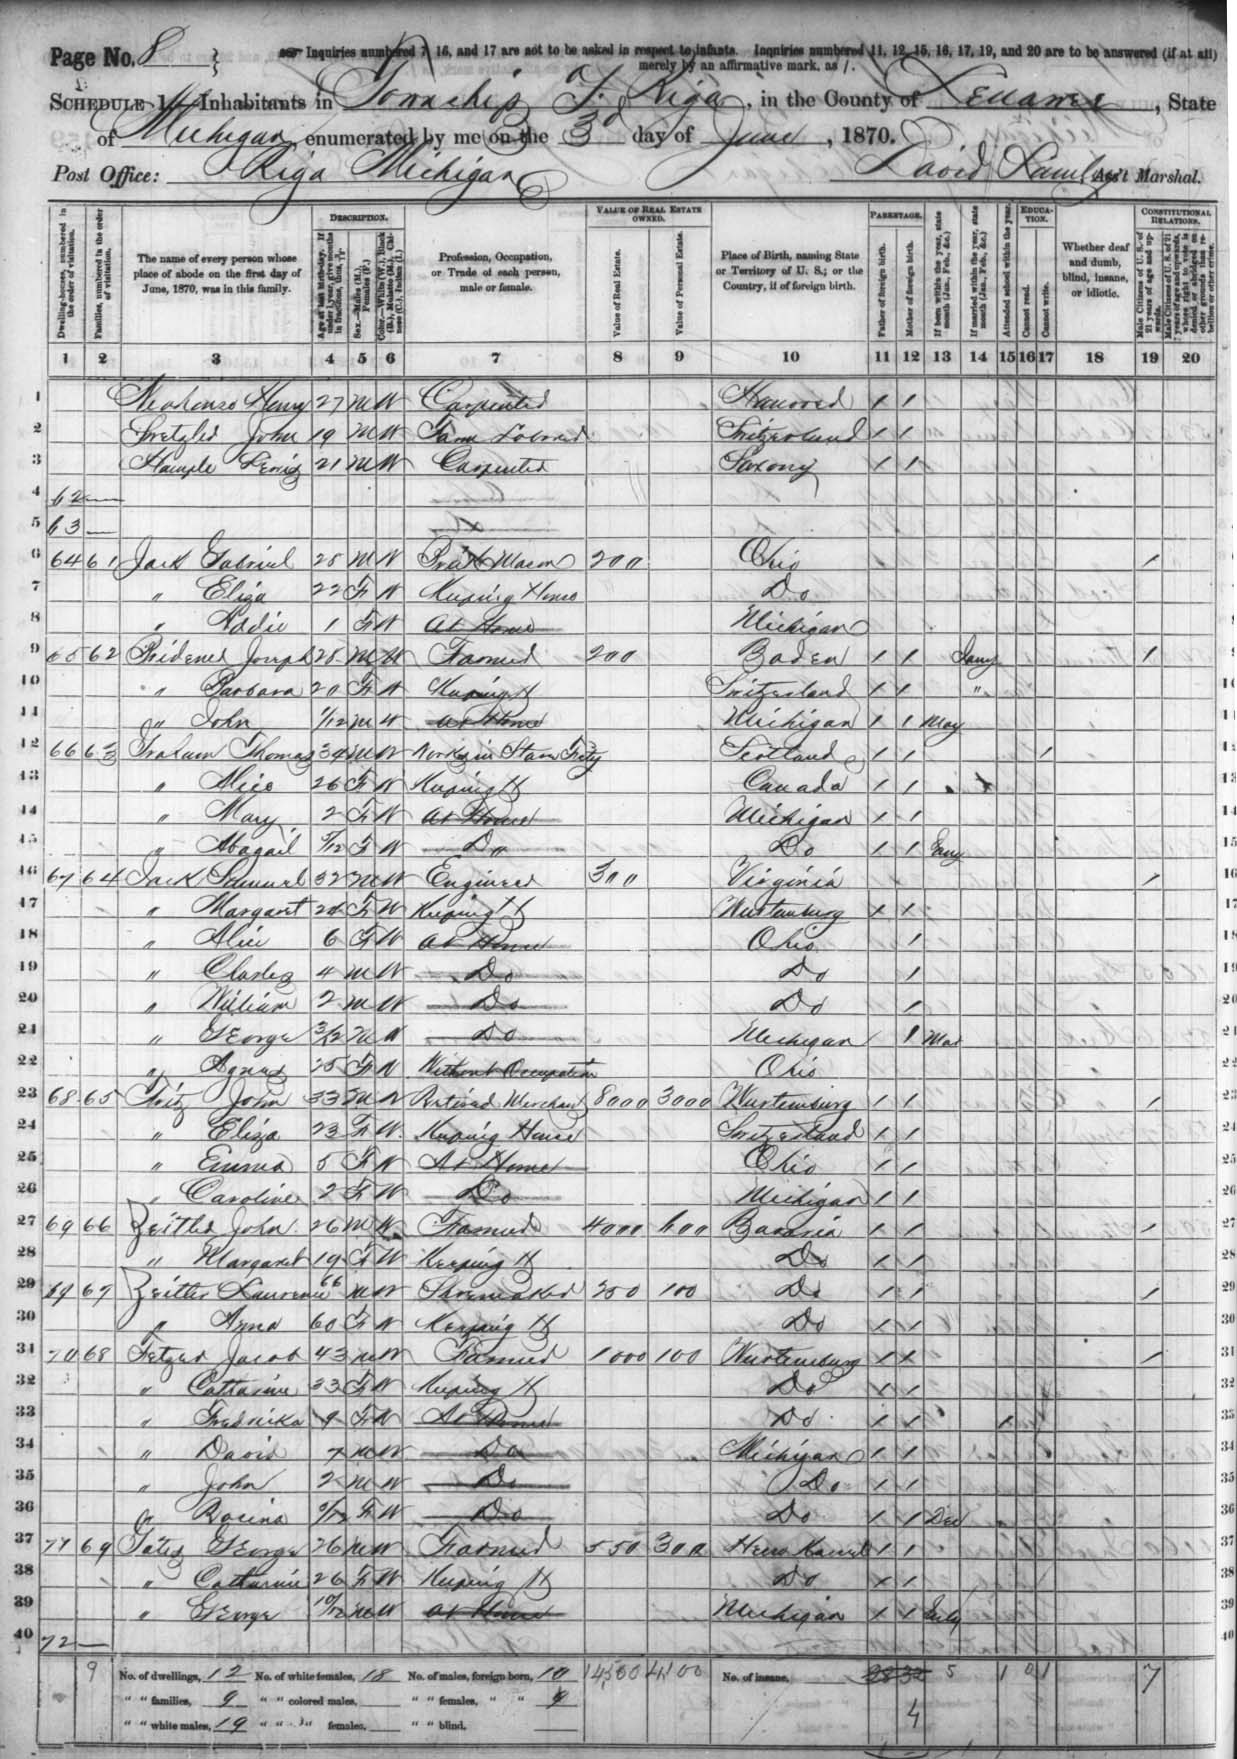 Page No. 8
Inquiries numbered 7, 16, and 17 are not to be asked in respect to infants. Inquiries numbered 11, 12, 15, 16, 17, 19, and 20 are to be answered (if at all)
merely by an affirmative mark, as /.
SCHEDULE 1.—Inhabitants in Township of Riga, in the County of Lenawee, State
of Michigan, enumerated by me on the 3d day of June, 1870.
Post Office: Riga Michigan David Ass't Marshal.
DESCRIPTION. VALUE OF REAL ESTATE OWNED. PARENTAGE. EDUCATION. CONSTITUTIONAL RELATIONS.
Dwelling-houses, numbered in the order of visitation.
Families, numbered in the order of visitation.
The name of every person whose place of abode on the first day of June, 1870, was in this family.
Age at last birth-day. If under 1 year, give months in fractions, thus, 3/12
Sex.—Males (M.), Females (F.)
Color.—White (W.), Black (B.), Mulatto (M.), Chinese (C.), Indian (I.)
Profession, Occupation, or Trade of each person, male or female.
Value of Real Estate.
Value of Personal Estate.
Place of Birth, naming State or Territory of U. S.; or the Country, if of foreign birth.
Father of foreign birth.
Mother of foreign birth.
If born within the year, state month (Jan., Feb., &c.)
If married within the year, state month (Jan., Feb., &c.)
Attended school within the year.
Cannot read.
Cannot write.
Whether deaf and dumb, blind, insane, or idiotic.
Male Citizens of U. S. of 21 years of age and upwards.
Male Citizens of U. S. of 21 years of age and upwards, whose right to vote is denied or abridged on other grounds than rebellion or other crime.
1 2 3 4 5 6 7 8 9 10 11 12 13 14 15 16 17 18 19 20
1 Henry 27 M W Carpenter Hanover / /
2 John 19 M W Farm Laborer Switzerland / /
3 21 M W Carpenter Saxony / /
4 62 —
5 63 —
6 64 61 Jack Gabriel 25 M W Brick Mason 200 Ohio /
7 " Eliza 22 F W Keeping House Do
8 " Addie 1 F W At Home Michigan
9 65 62 Joseph 28 M W Farmer 200 Baden / / Jany /
10 " Barbara 20 F W Keeping H Switzerland / / "
11 " John 1/12 M W At Home Michigan / / May
12 66 63 Graham Thomas 34 M W Works in Stave Scotland / / /
13 " Alice 26 F W Keeping H Canada / /
14 " Mary 2 F W At Home Michigan / /
15 " Abagail 5/12 F W Do Do / /
16 67 64 Jack Samuel 32 M W Engineer 300 Virginia /
17 " Margaret F W Keeping H Wurtemburg / /
18 " Alice 6 F W At Home Ohio /
19 " Charles 4 M W Do Do /
20 " William 2 M W Do Do /
21 " George 3/12 M W Do Michigan / Mar
22 " Agnes 25 F W Without Occupation Ohio
23 68 65 Fritz John 33 M W Retired Merchant 8000 3000 Wurtemburg / / /
24 " Eliza 23 F W Keeping House Switzerland / /
25 " Emma 5 F W At Home Ohio / /
26 " Caroline 2 F W Do Michigan / /
27 69 66 Zeitler John 26 M W Farmer 4000 600 Bavaria / / /
28 " Margaret 19 F W Keeping H Do / /
29 69 67 Zeitler Laurence 66 M W Shoemaker 250 100 Do / / /
30 " Anna 60 F W Keeping H Do / /
31 70 68 Fetzer Jacob 43 M W Farmer 1000 100 Wurtemburg / / /
32 " Catharine 33 F W Keeping H Do / /
33 " Fredrika 9 F W At Home Do / / /
34 " David M W Do Michigan / /
35 " John 2 M W Do Do / /
36 " Rosina F W Do Do / / Dec
37 71 69 George 26 M W Farmer 550 300 / /
38 " Catharine 26 F W Keeping H Do / /
39 " George 10/12 M W At Home Michigan / / July
40 72 —
9 No. of dwellings, 12 No. of white females, 18 No. of males, foreign born, 10 No. of insane, 5 1 0 1 7
" " families, 9 " " colored males, " " females, " " 9
" " white males, 19 " " " females, " " blind, 4